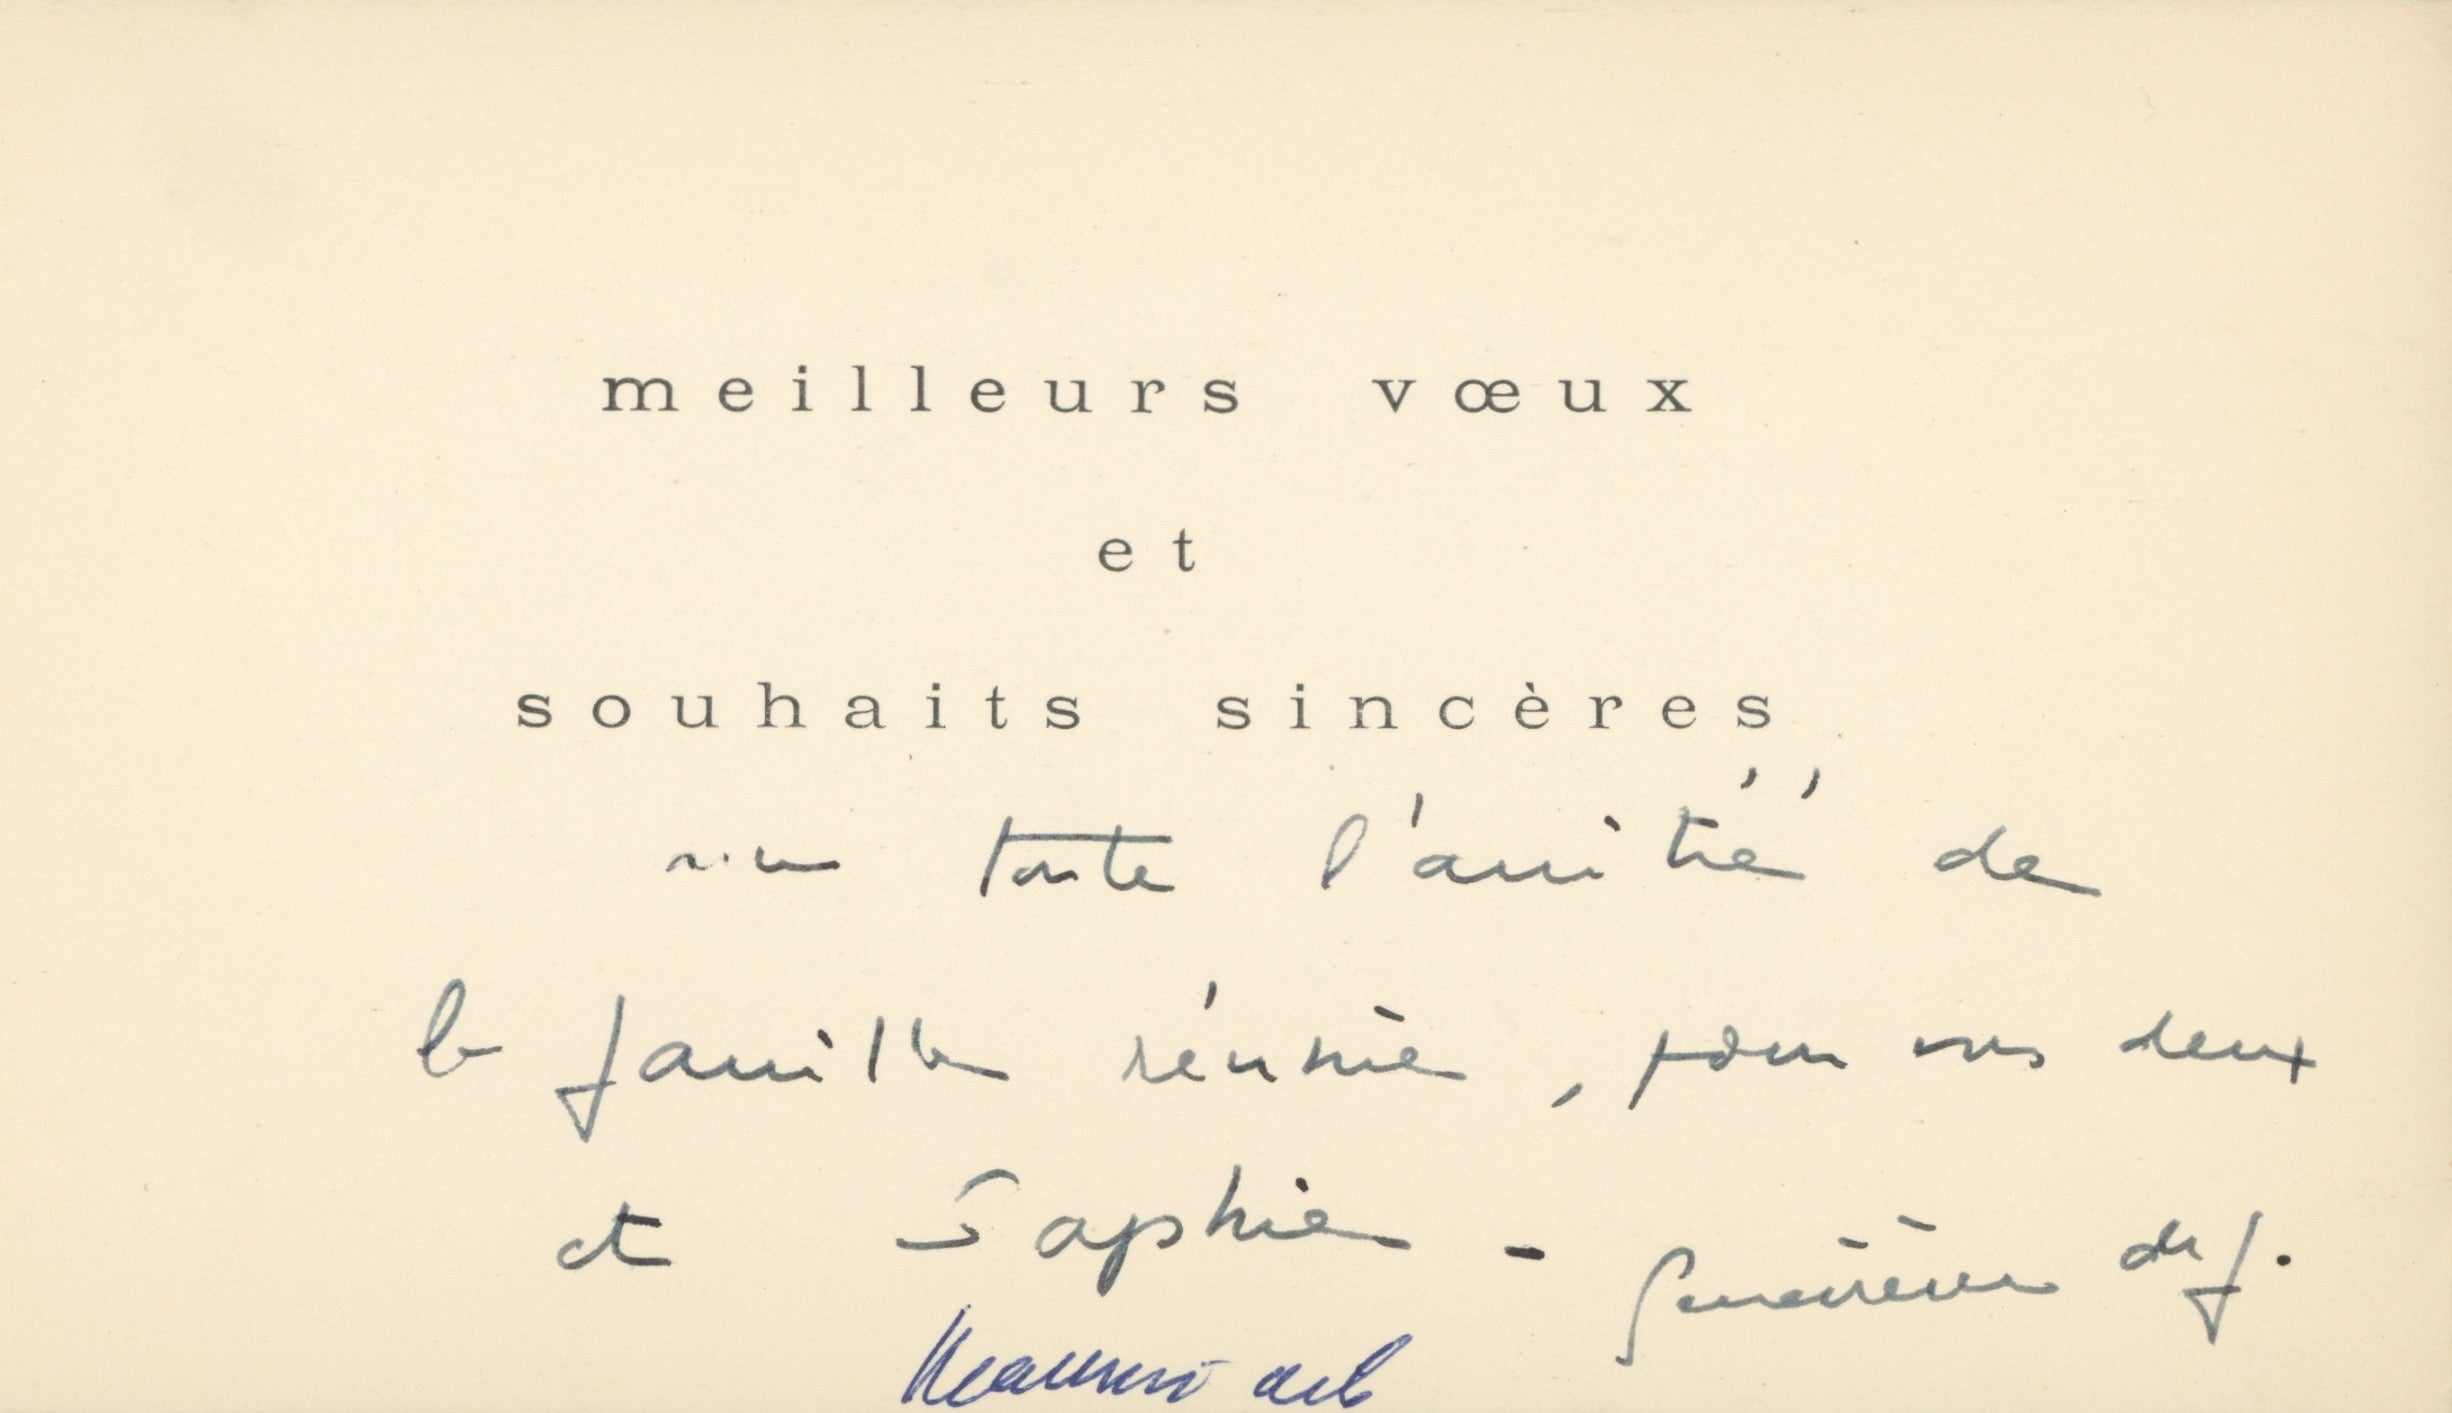 meilleurs vœux
et
souhaits sincères
toute l'amitié de
la famille réunie, pour vous deux
et Sophie - Geneviève de f.